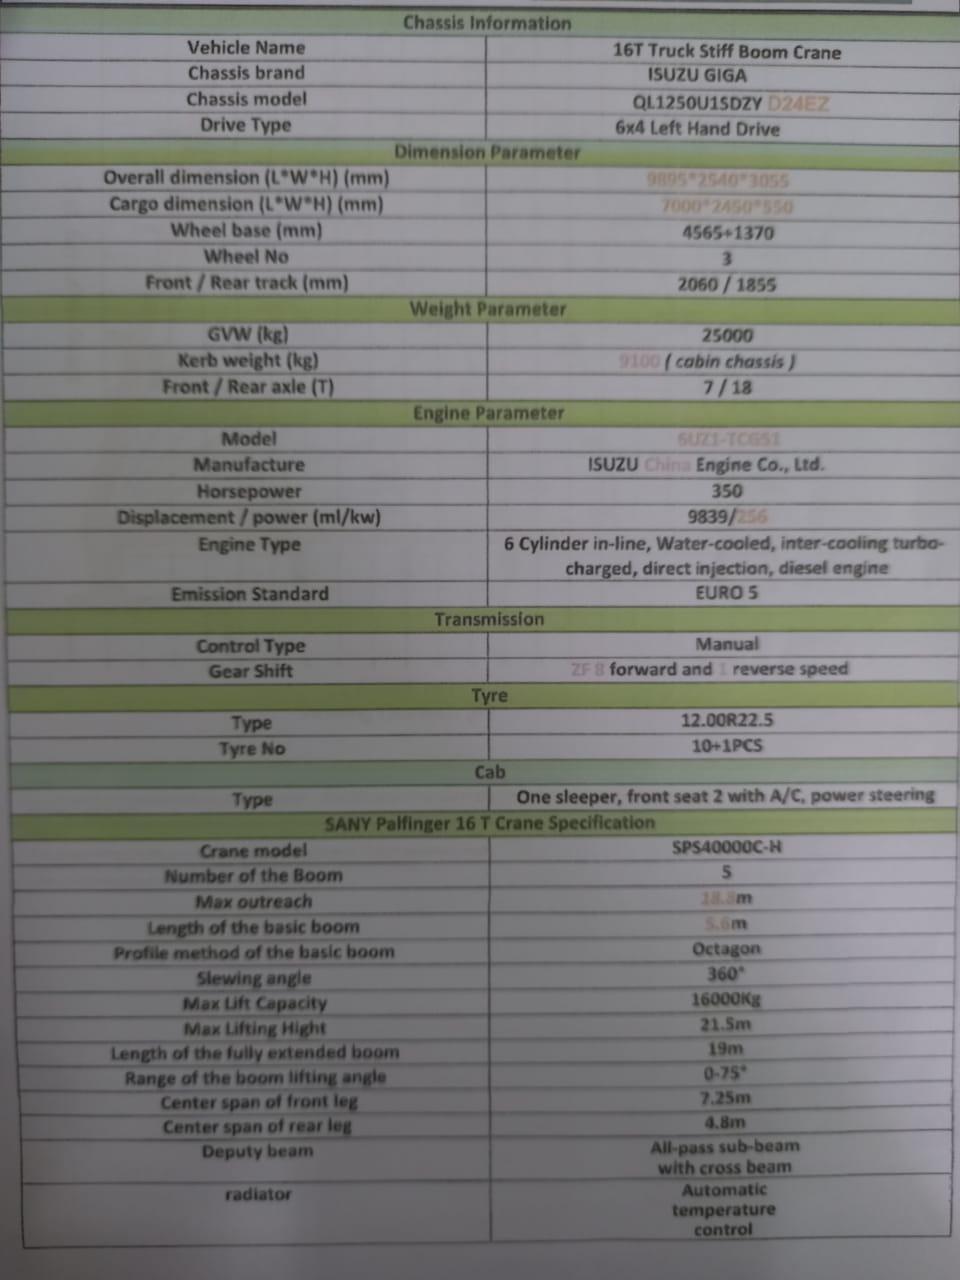 Chassis Information
Vehicle Name 16T Truck Stiff Boom Crane
Chassis brand ISUZU GIGA
Chassis model QL1250U1SDZY D24EZ
Drive Type 6x4 Left Hand Drive
Dimension Parameter
Overall dimension (L*W*H) (mm) 9895*2540*3055
Cargo dimension (L*W*H) (mm) 7000*2450*550
Wheel base (mm) 4565+1370
Wheel No 3
Front / Rear track (mm) 2060 / 1855
Weight Parameter
GVW (kg) 25000
Kerb weight (kg) 9100 ( cabin chassis )
Front / Rear axle (T) 7 / 18
Engine Parameter
Model 6UZ1-TCG51
Manufacture ISUZU China Engine Co., Ltd.
Horsepower 350
Displacement / power (ml/kw) 9839/256
Engine Type 6 Cylinder in-line, Water-cooled, inter-cooling turbo-
charged, direct injection, diesel engine
Emission Standard EURO 5
Transmission
Control Type Manual
Gear Shift ZF 8 forward and 1 reverse speed
Tyre
Type 12.00R22.5
Tyre No 10+1PCS
Cab
Type One sleeper, front seat 2 with A/C, power steering
SANY Palfinger 16 T Crane Specification
Crane model SPS40000C-H
Number of the Boom 5
Max outreach 18.8m
Length of the basic boom 5.6m
Profile method of the basic boom Octagon
Slewing angle 360°
Max Lift Capacity 16000Kg
Max Lifting Hight 21.5m
Length of the fully extended boom 19m
Range of the boom lifting angle 0-75°
Center span of front leg 7.25m
Center span of rear leg 4.8m
Deputy beam All-pass sub-beam
with cross beam
radiator Automatic
temperature
control